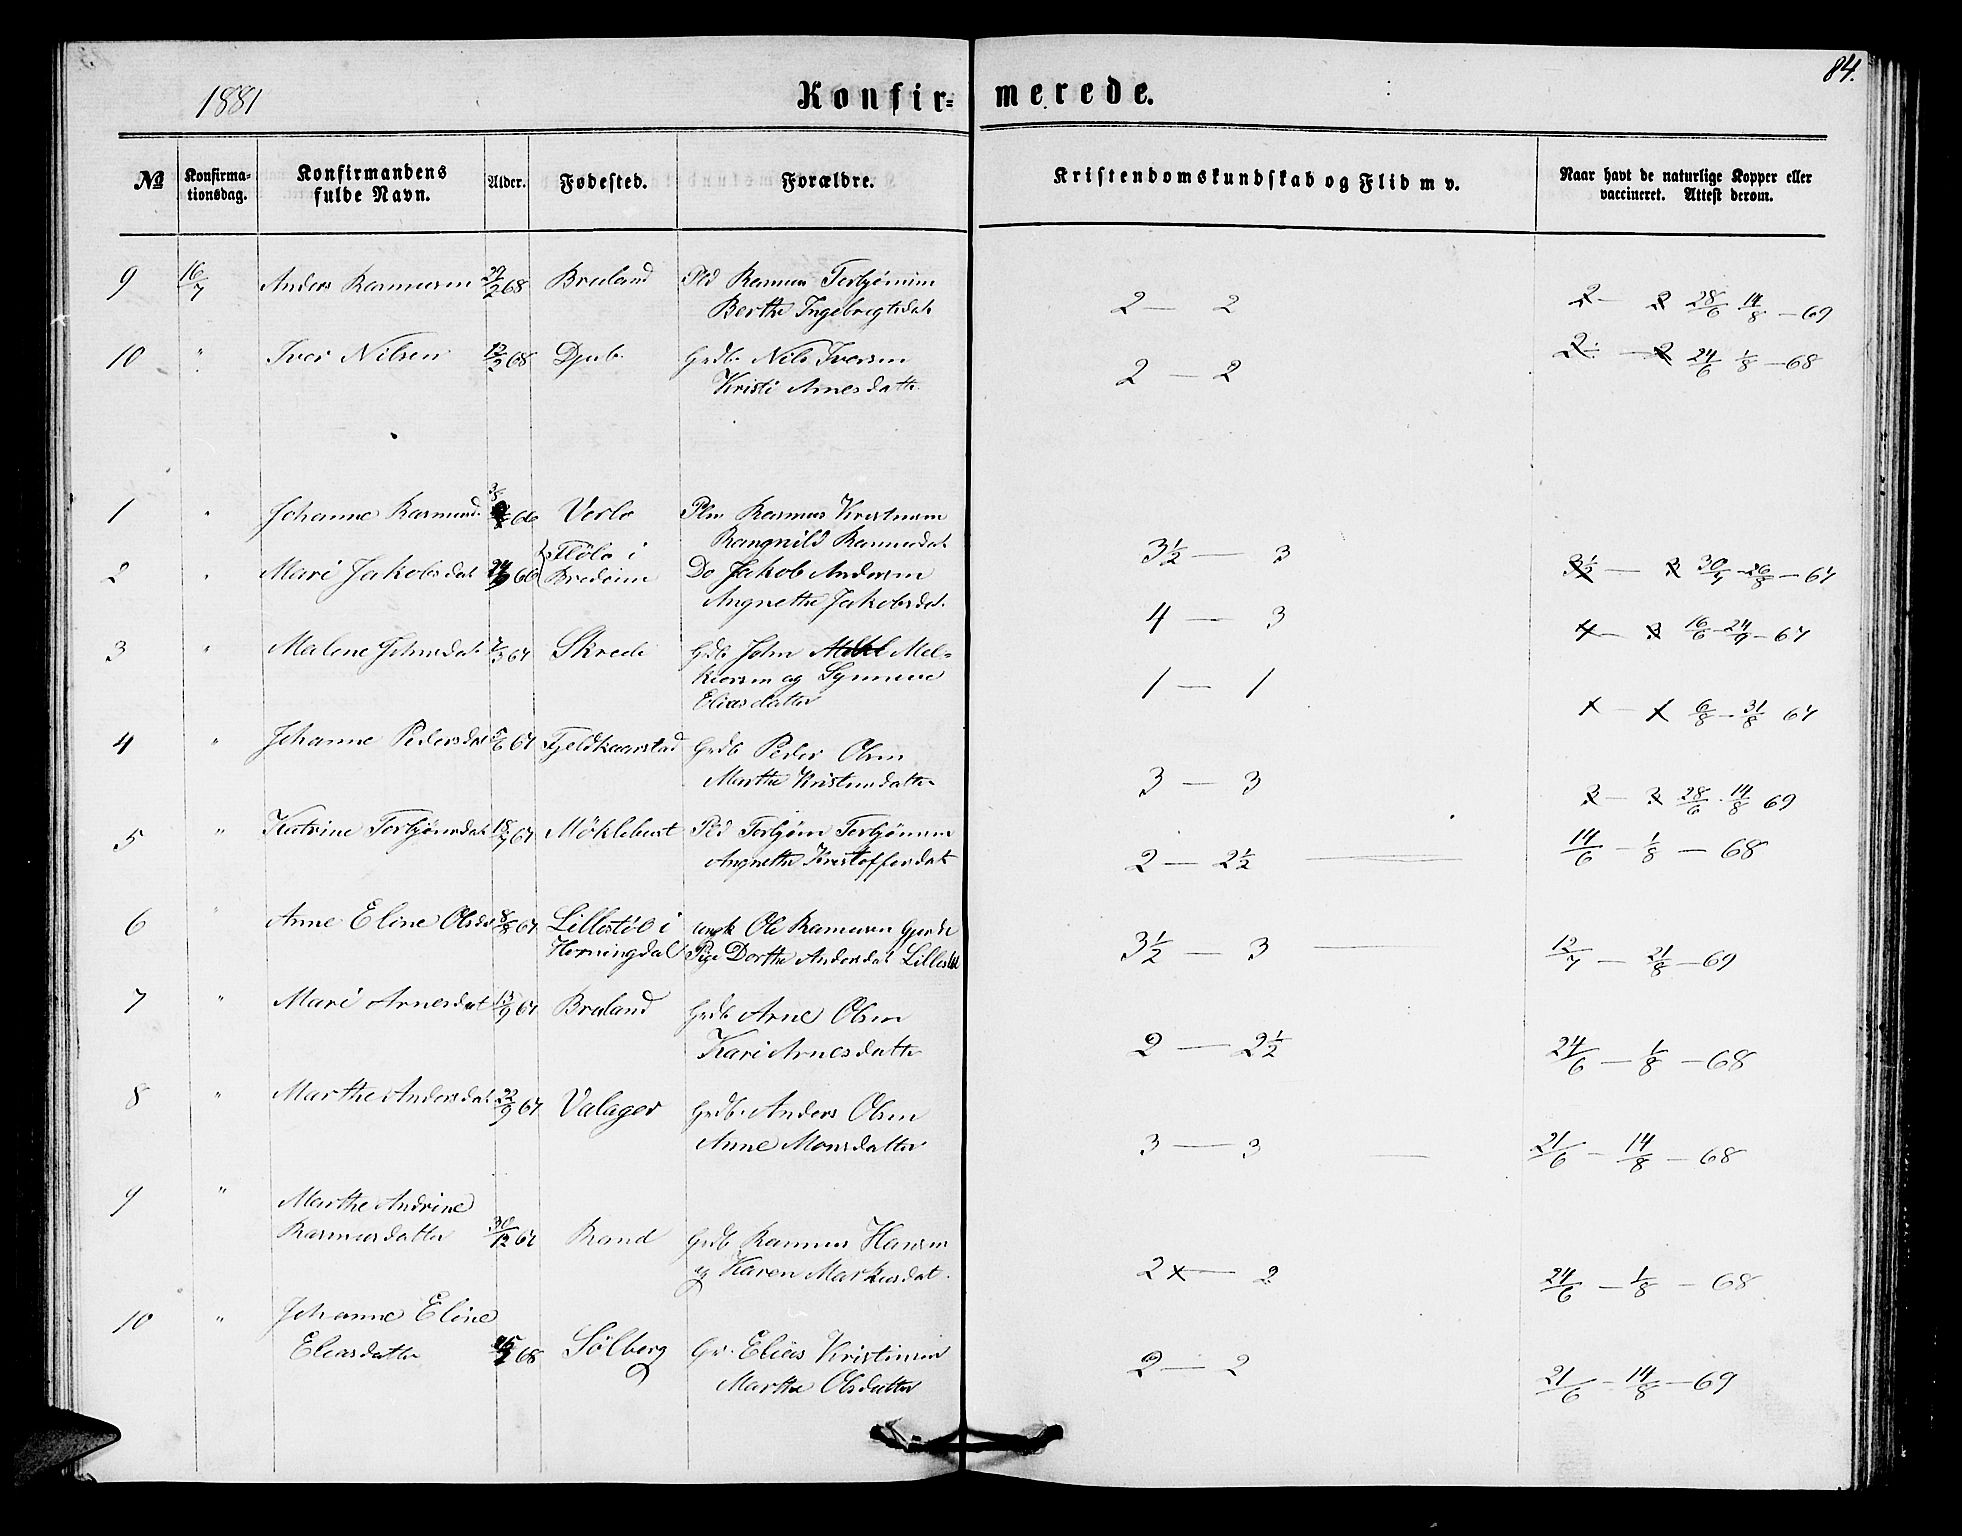 84.
1881
Konfir- merede.
No Konfirma- tionsdag. Konfirmandens fulde Navn. Alder. Fødested. Forældre. Kristendomskundskab og Flid m v. Naar havt de naturlige Kopper eller vaccineret. Attest derom.
9 16/7 Anders Rasmusen 29/2 68 Breland Pld Rasmus Torbjørnsen
Berthe Ingebrigtsdat 2 — 2 28/6 14/8 — 69
10 " Iver Nilsen 12/3 68 Djub. Grdb. Nils Iversen
Kristi Arnesdatter 2 — 2 24/6 1/8 — 68
1 " Johanne Rasmusd. 66 Verlo Plm Rasmus Kristensen
Rangnild Rasmusdat 3½ — 3 30/7 - 26/8 — 67
2 " Mari Jakobsdat 24/9 66 Flölo i
Bredeim Do Jakob Andersen
Angnethe Jakobsdat. 4 — 3 16/6 - 24/9 - 67
3 " Malene Johnsdat 7/3 67 Skrede Grdb John Mel-
kiorsen og Synneve
Eliasdatter 1 — 1 6/8 - 31/8 67
4 " Johanne Pedersdat 67 Fjeldkaarstad Grdb Peder Olsen
Marthe Kristensdatter 3 — 3 28/6 14/8 69
5 " Katrine Torbjørnsdat 18/7 67 Möklebust Pld Torbjørn Torbjørnsen
Angnethe Kristoffersdat 2 — 2½ 14/6 - 1/8 — 68
6 " Anne Eline Olsdt 8/8 67 Lillestöl i
Horningdal ungk Ole Rasmusen Gjerde
Pige Dorthe Andersdat Lillestöl 3½ — 3 12/7 — 21/8 — 69
7 " Mari Arnesdat 13/9 67 Breland Grdb Arne Olsen
Kari Arnesdatter 2 — 2½ 24/6 — 1/8 — 68
8 " Marthe Andersdat 22/9 67 Valager Grdb. Anders Olsen
Anne Monsdatter 3 — 3 21/6 — 14/8 — 68
9 " Marthe Andrine
Rasmusdatter 30/12 67 Rand Grdb Rasmus Hansen
og Karen Markusdat. 2x — 2 24/6 — 1/8 — 68
10 " Johanne Eline
Eliasdatter 68 Sölberg Gr. Elias Kristensen
Marthe Olsdatter 2 — 2 21/6 - 14/8 — 69